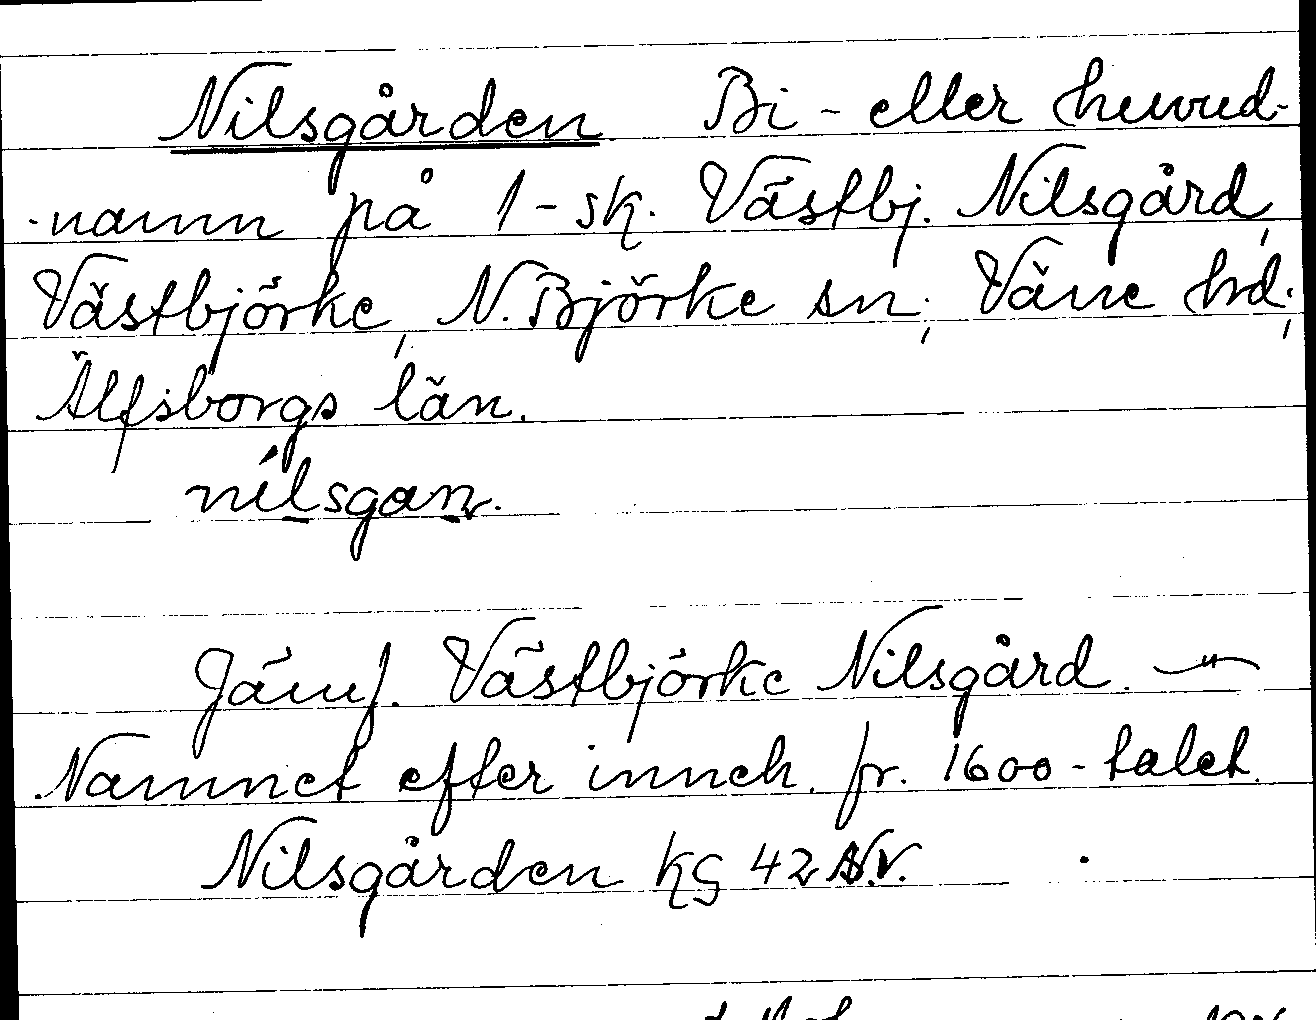 Nilsgården Bi- eller huvud-
namn på 1-sk. Västbj. Nilsgård,
Västbjörke, N. Björke sn, Väne hd.,
Älfsborgs län.
nílsgan.
Jämf. Västbjörke Nilsgård. —"—
Namnet efter inneh. fr. 1600-talet.
Nilsgården kg 42 N.V.